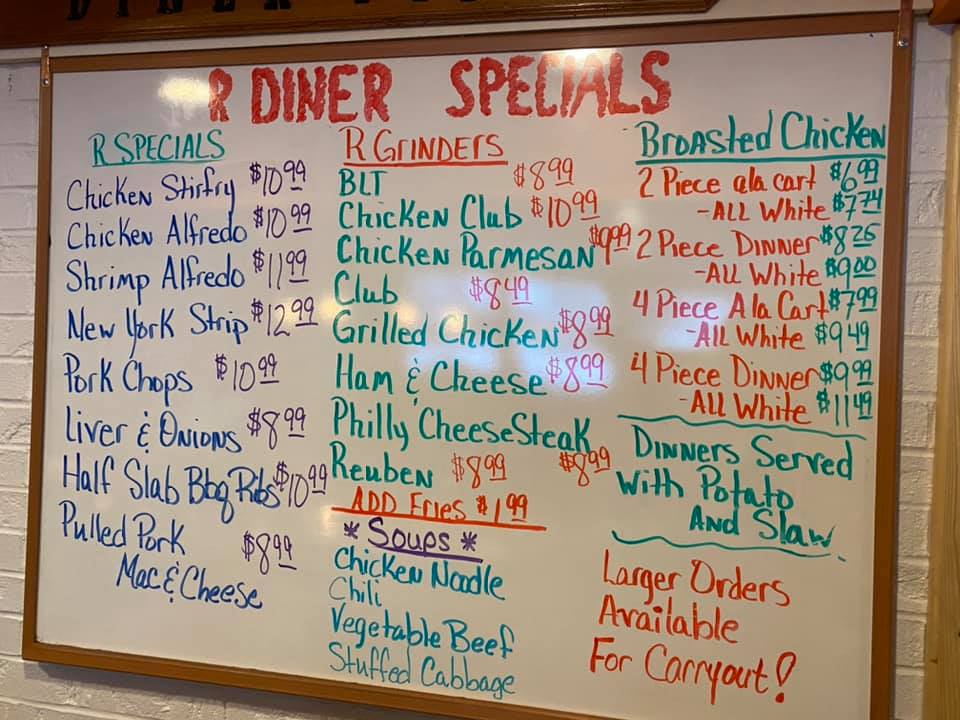 DINER
R DINER SPECIALS
R SPECIALS
Chicken Stirfry $10.99
Chicken Alfredo $10.99
Shrimp Alfredo $11.99
New York Strip $12.99
Pork Chops $10.99
Liver & Onions $8.99
Half Slab Bbq Ribs $10.99
Pulled Pork $8.99
Mac & Cheese
R GRINDERS
BLT $8.99
Chicken Club $10.99
Chicken Parmesan $9.99
Club $8.49
Grilled Chicken $8.99
Ham & Cheese $8.99
Philly CheeseSteak $8.99
Reuben $8.99
ADD Fries $1.99
* Soups *
Chicken Noodle
Chili
Vegetable Beef
Stuffed Cabbage
Broasted Chicken
2 Piece ala cart $6.99
-ALL White $7.74
2 Piece Dinner $8.25
-ALL White $9.00
4 Piece A la Cart $7.99
-ALL White $9.49
4 Piece Dinner $9.99
-ALL White $11.49
Dinners Served
With Potato
And Slaw
Larger Orders
Available
For Carryout!